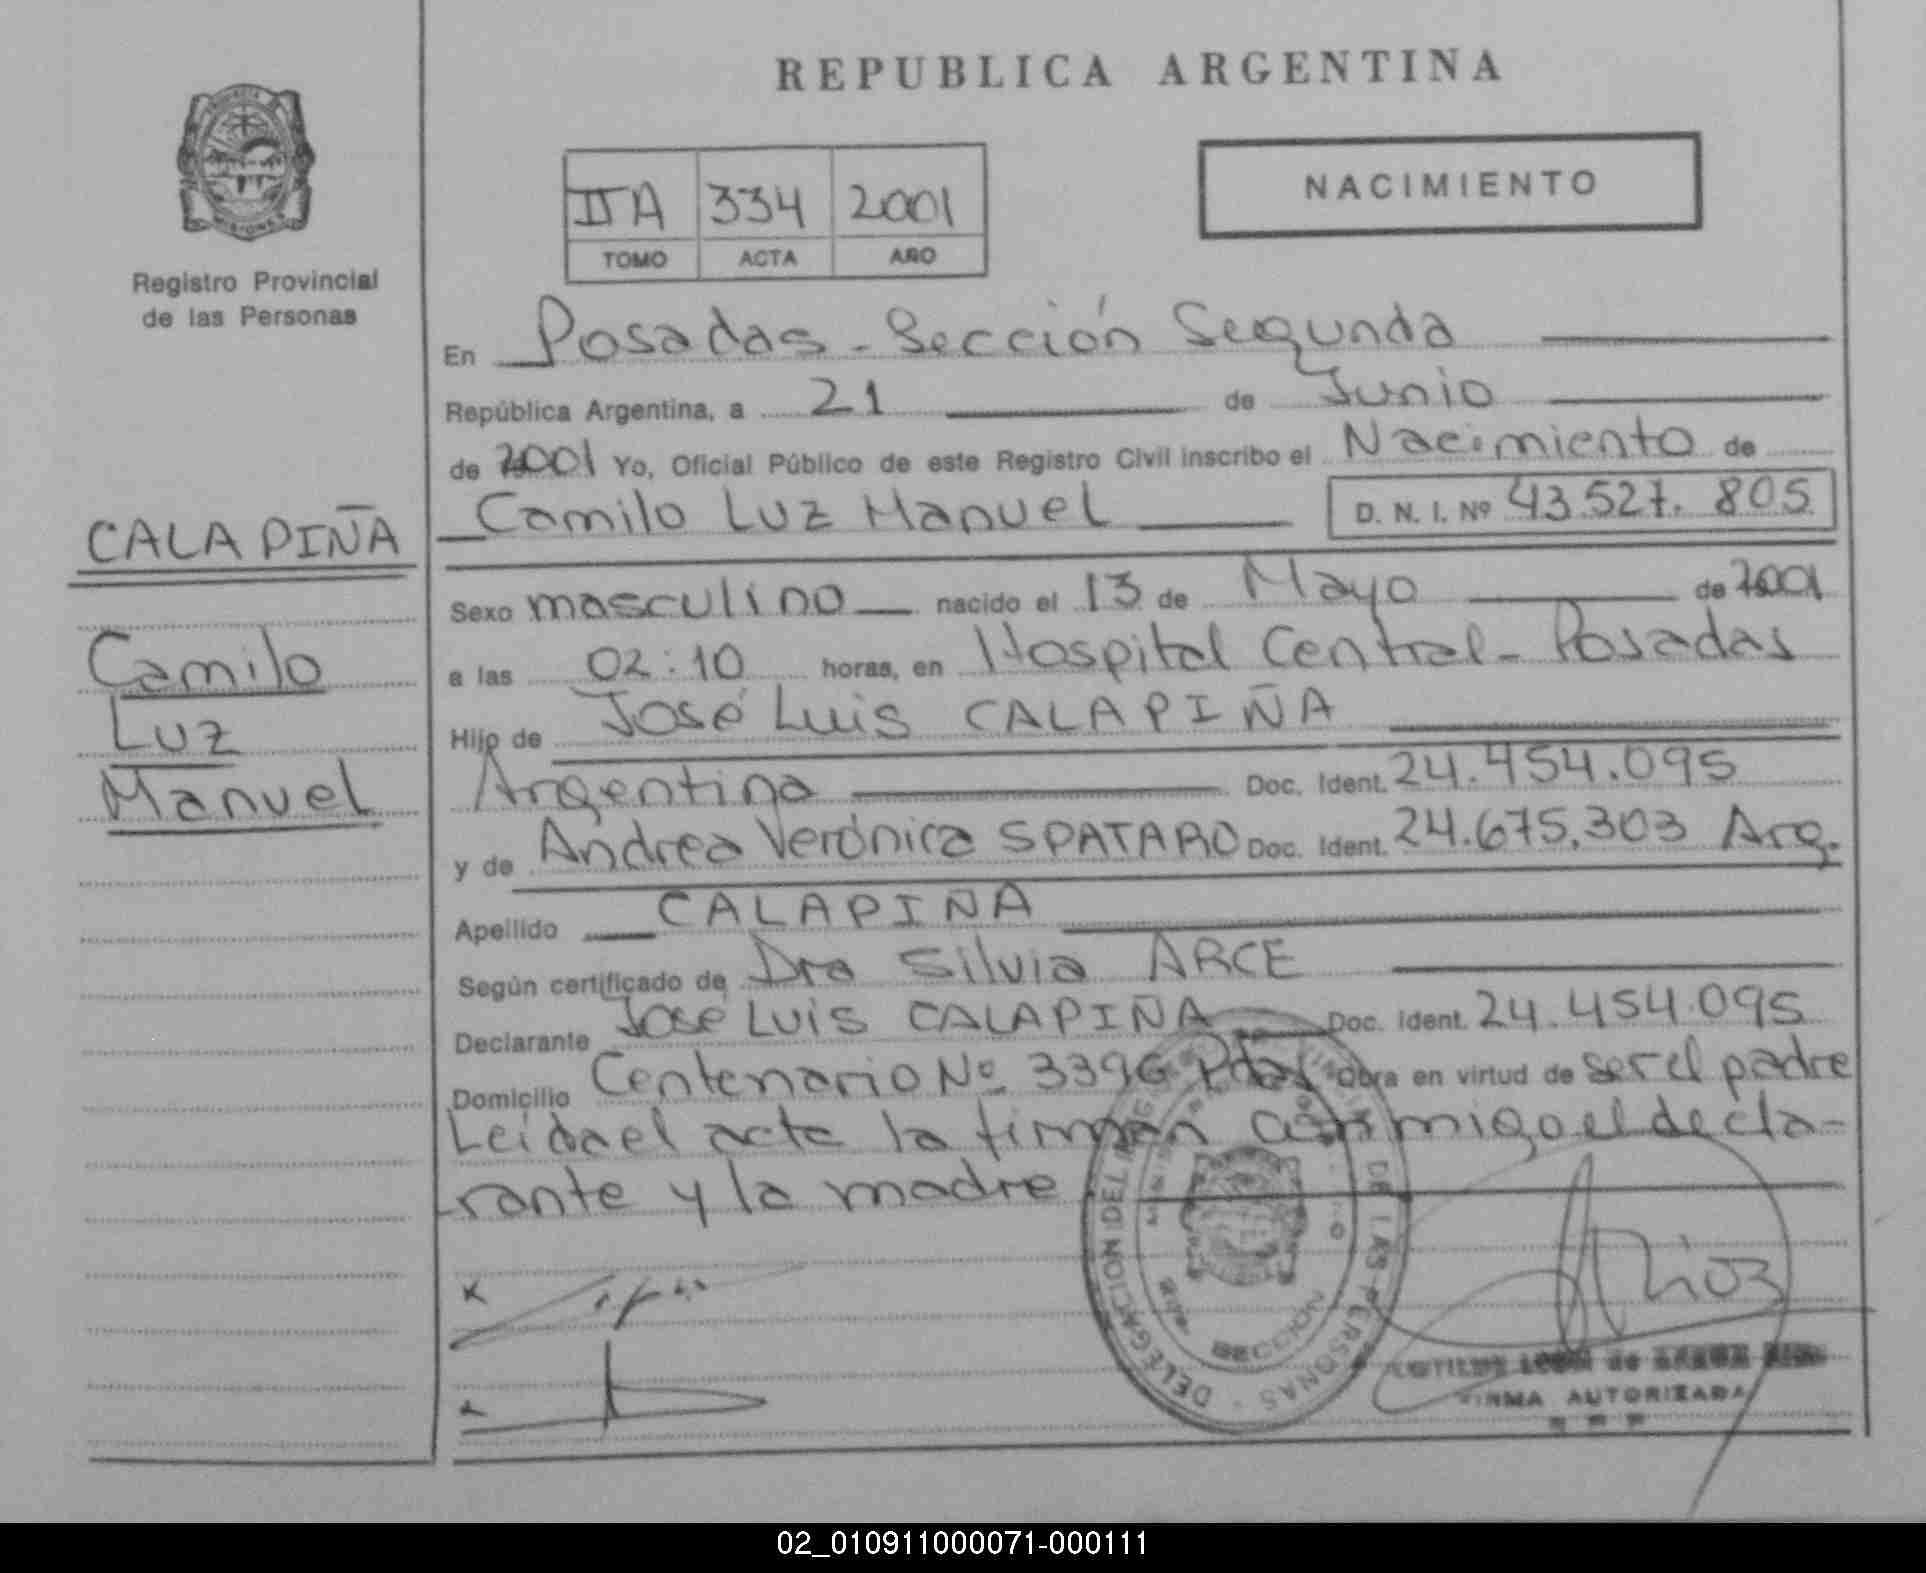 REPUBLICA ARGENTINA
NACIMIENTO
IIA 334 2001
TOMO ACTA AÑO
Registro Provincial
de las Personas
CALAPIÑA
Camilo
Luz
Manuel
En Posadas - Sección Segunda
República Argentina, a 21 de Junio
de 2001 Yo, Oficial Público de este Registro Civil inscribo el Nacimiento de
Camilo Luz Manuel D. N. I. Nº 43.527.805
Sexo masculino nacido el 13 de Mayo de 2001
a las 02:10 horas, en Hospital Central - Posadas
Hijo de José Luis CALAPIÑA
Argentina Doc. Ident. 24.454.095
y de Andrea Verónica SPATARO Doc. Ident. 24.675.303 Arg.
Apellido CALAPIÑA
Según certificado de Dra Silvia ARCE
Declarante José Luis CALAPIÑA Doc. Ident. 24.454.095
Domicilio Centenario Nº 3396 Pdas Obra en virtud de ser el padre
Leída el acta la firman conmigo el decla-
rante y la madre
DELEGACION DEL DE LAS PERSONAS
SECCION
FIRMA AUTORIZADA
02_010911000071-000111